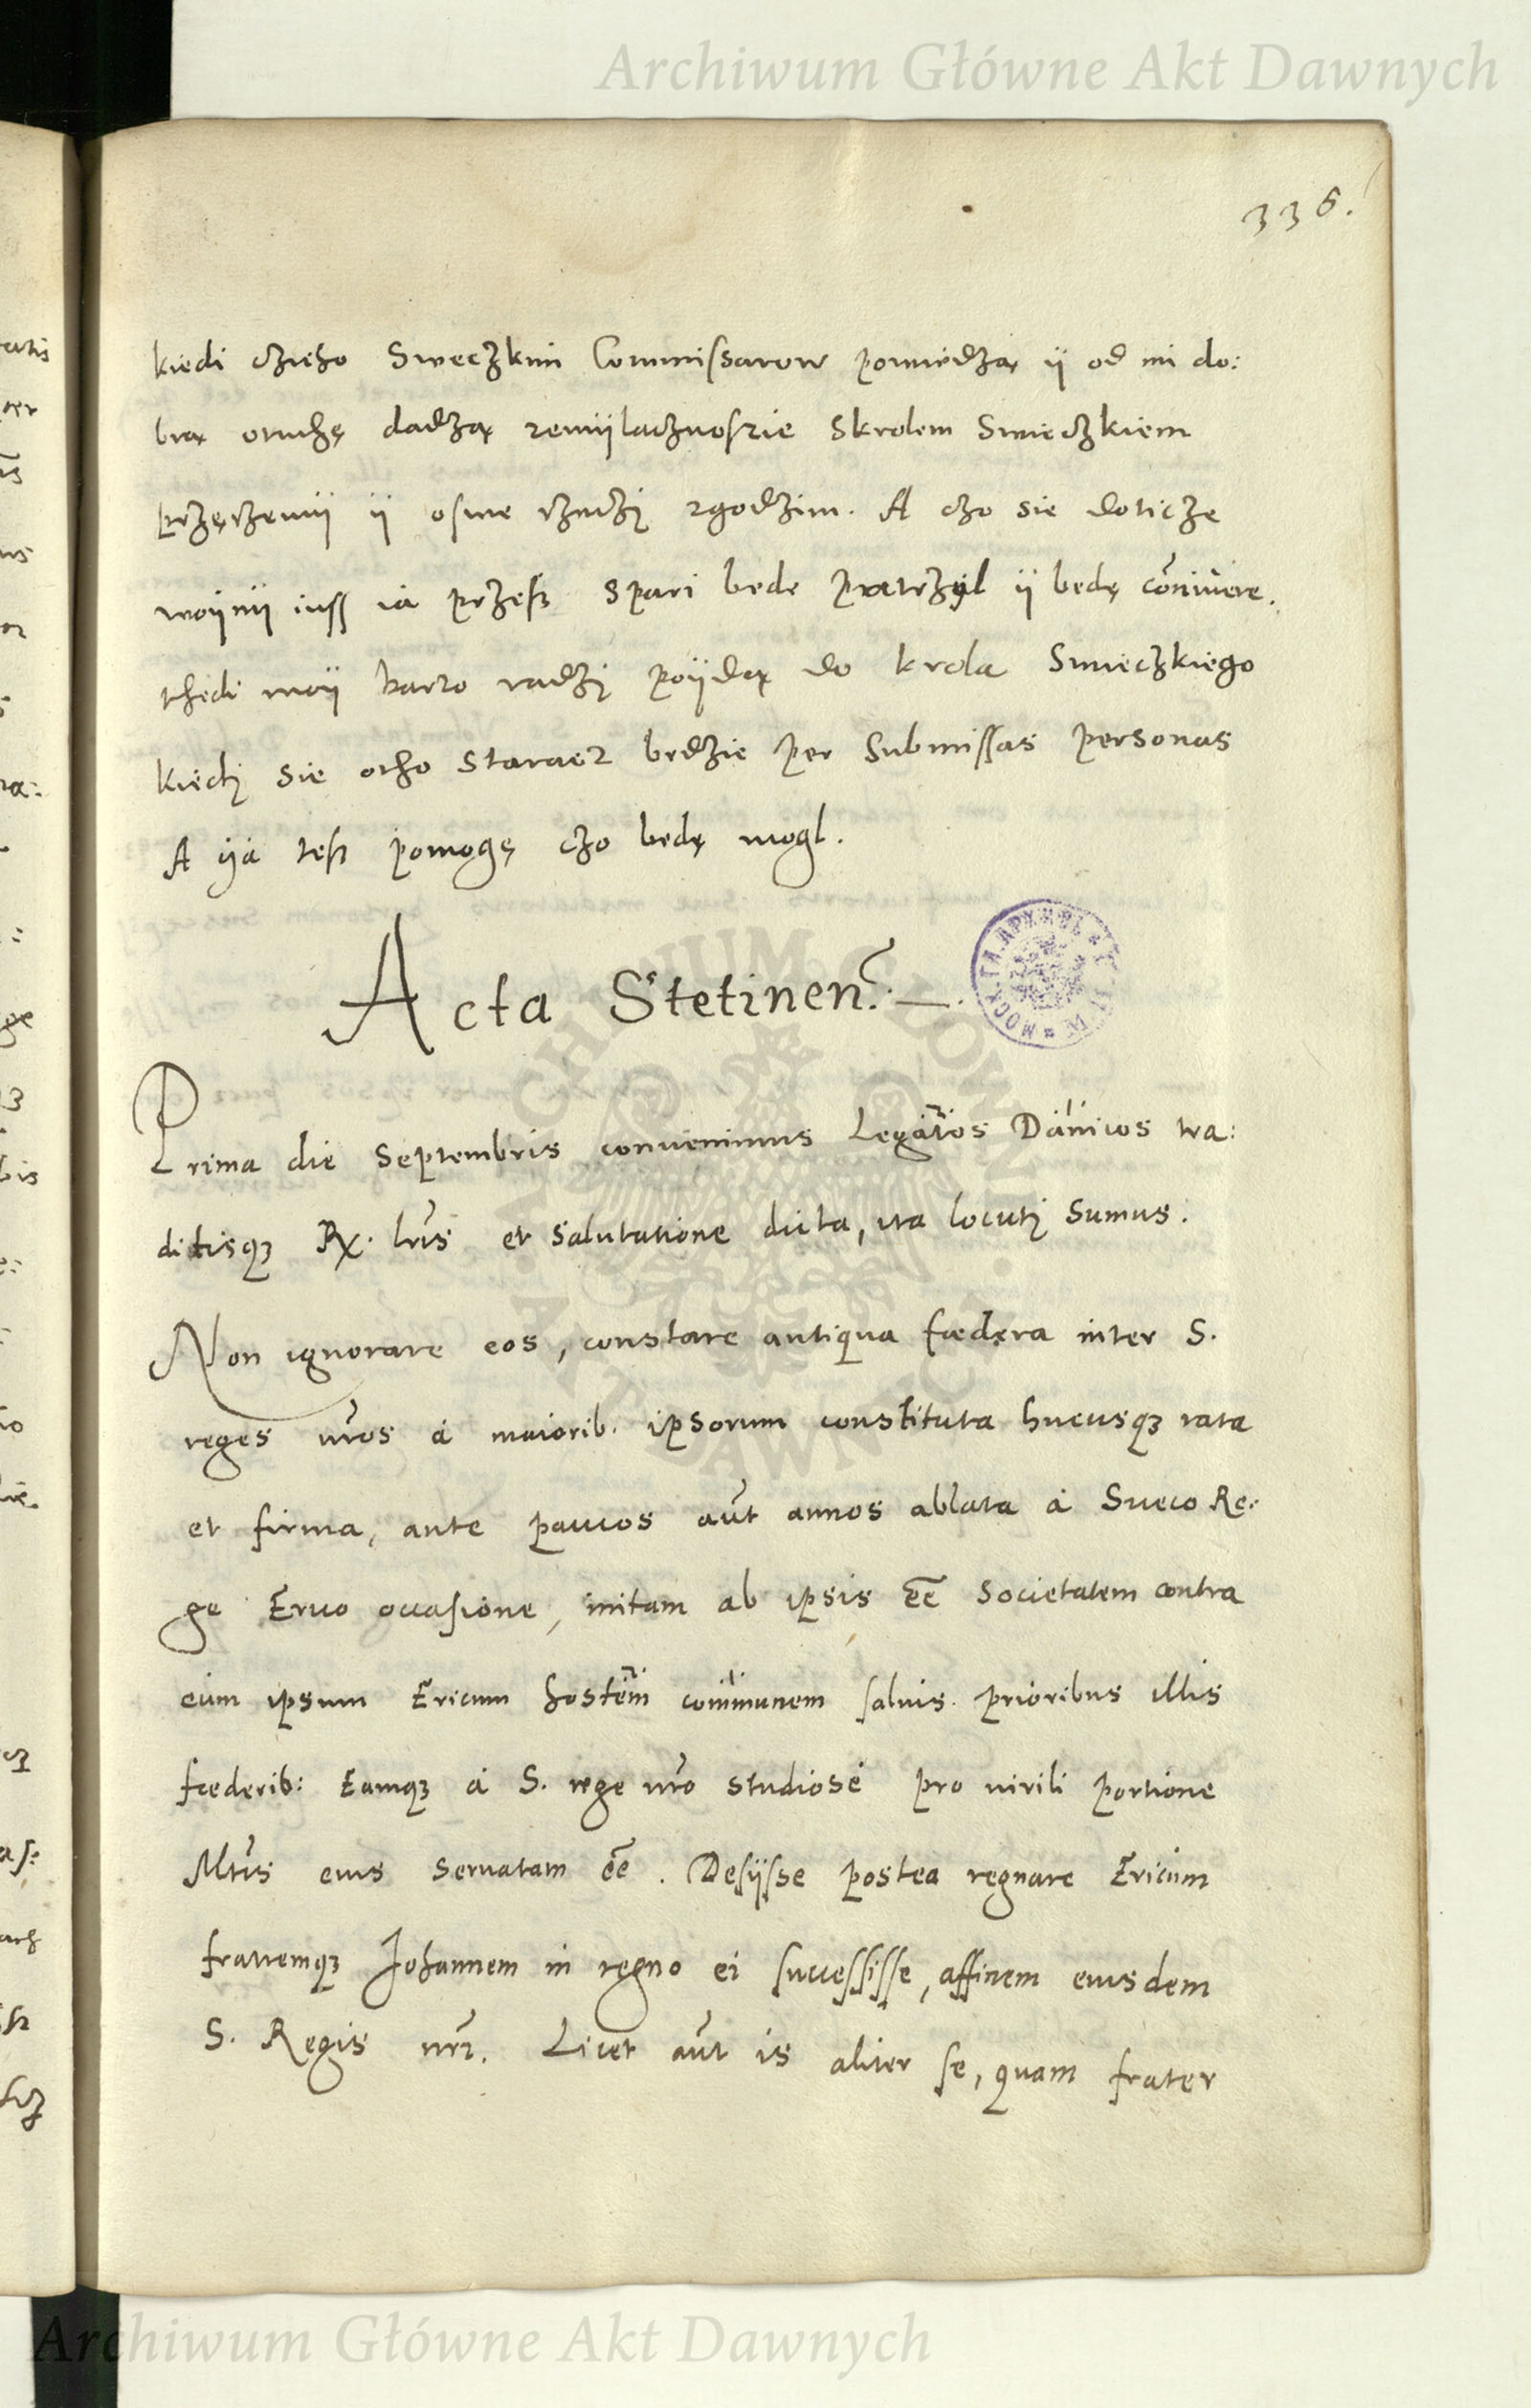 Archiwum Główne Akt Dawnych
336.
kiedi czieho Sweczkim Commissarow powiedzą ij od mi do:
brą otuchę dadzą zemij lacznoscie Skrolem Swieczkiem
ij oswe rzeczj zgodzim. A czo sie doticze
woijnij iuss ia przess Spari bede patrzyl ij bedę connivere.
thedi moij barzo radzj poijdą do krola Swieczkiego
kiedj sie otho staracz bedzie per Submissas personas
A ija tess pomogę czo bedę mogl.
Acta Stetinen.
Prima die Septembris convenimus Legatos Danicos tra:
ditisq3 Rx. lris et salutatione dicta, ita locutj sumus.
Non ignorare eos, constare antiqua fœdera inter S.
reges nros à maiorib. ipsorum constituta hucusq3 rata
et firma, ante paucos aut annos ablata à Sueco Re:
ge Erico occasione, initam ab ipsis ee societatem contra
eum ipsum Ericum hostem communem salvis prioribus illis
fœderib: Eamq3 à S. rege nro studiosè pro virili portione
Mtis eius servatam ee. Desijsse postea regnare Ericum
fratremq3 Johannem in regno ei successisse, affinem eiusdem
S. Regis nri. Licet aut is aliter se, quam frater
Archiwum Główne Akt Dawnych